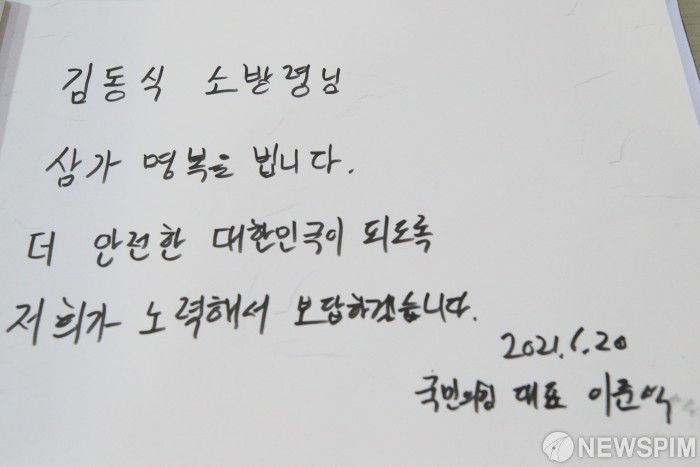 김동식 소방령님
삼가 명복을 빕니다.
더 안전한 대한민국이 되도록
저희가 노력해서 보답하겠습니다.
2021.6.20
국민의힘 대표 이준석
NEWSPIM